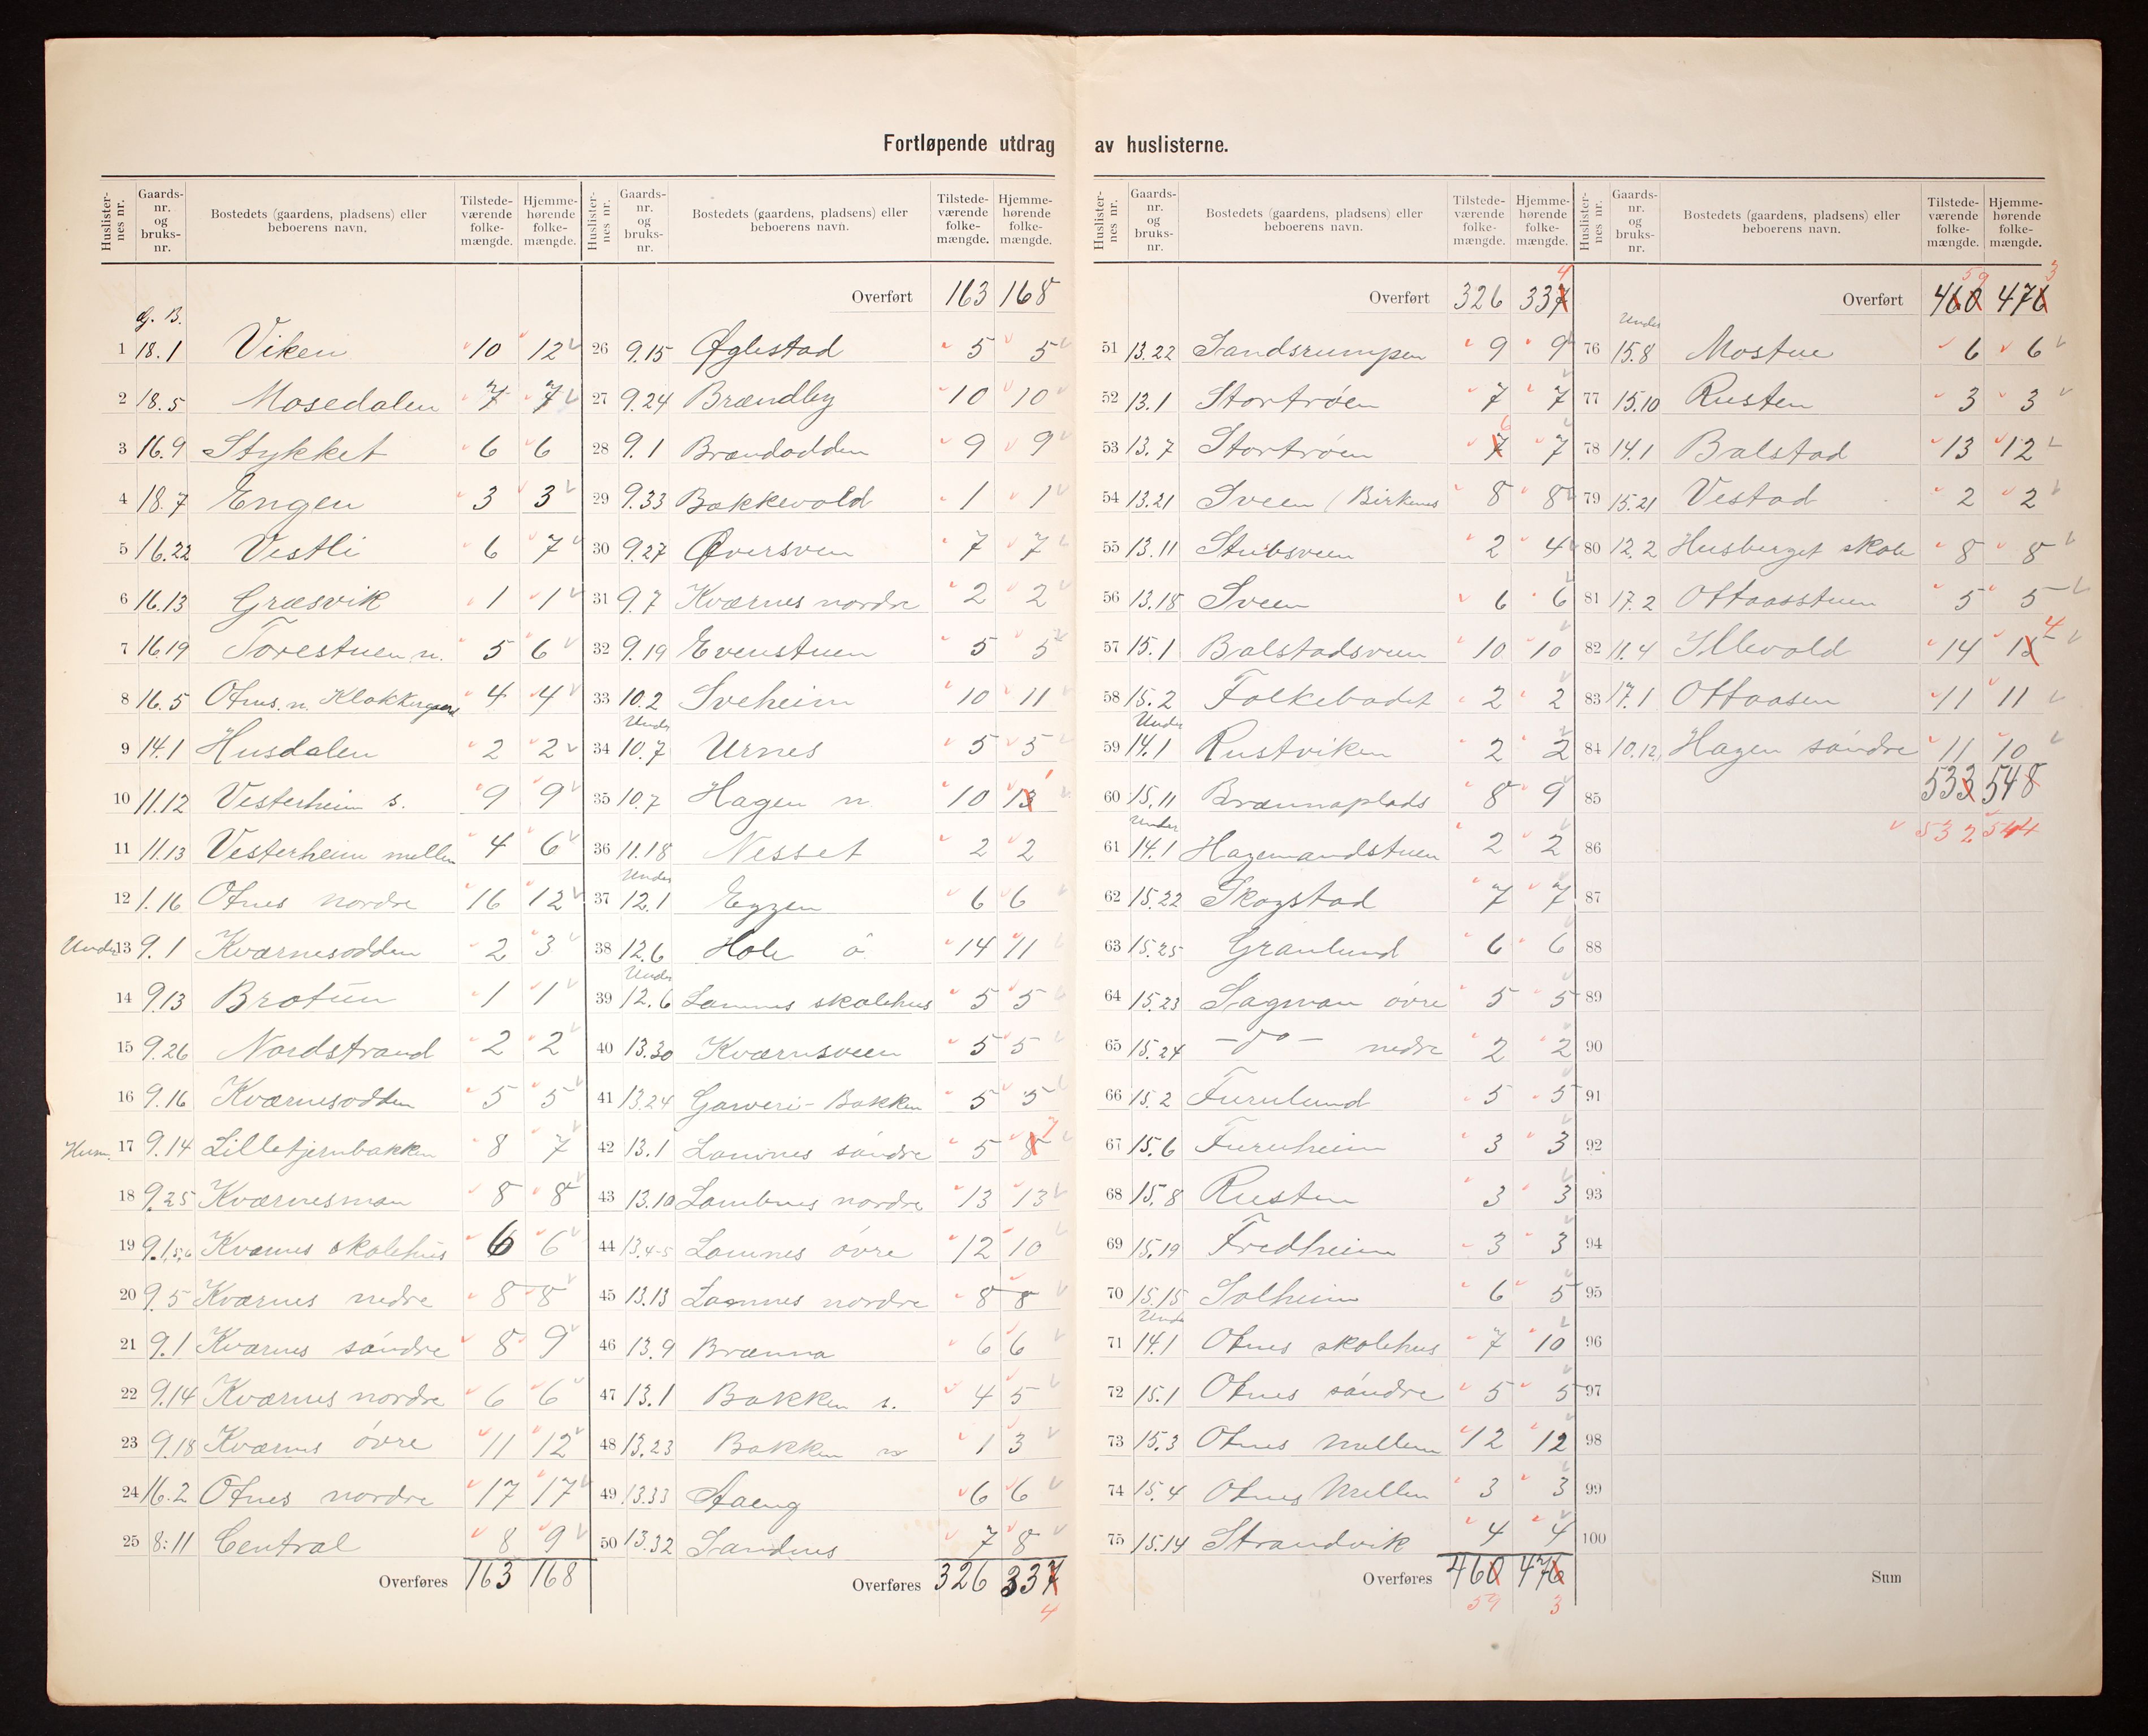 Fortløpende utdrag av huslisterne.
Huslister-nes nr. Gaards-nr. og bruks-nr. Bostedets (gaardens, pladsens) eller beboerens navn. Tilstede-værende folke-mængde. Hjemme-hørende folke-mængde.
G. B.
1 18.1 Viken 10 12
2 18.5 Mosedalen 7 7
3 16.9 Stykket 6 6
4 18.7 Engen 3 3
5 16.22 Vestli 6 7
6 16.13 Græsvik 1 1
7 16.19 Torestuen n. 5 6
8 16.5 Otnes. n. Klokkergaard 4 4
9 14.1 Husdalen 2 2
10 11.12 Vesterheim s. 9 9
11 11.13 Vesterheim mellem 4 6
12 1.16 Otnes nordre 16 12
Under 13 9.1 Kværnesodden 2 3
14 9.13 Brotun 1 1
15 9.26 Nordstrand 2 2
16 9.16 Kværnesodden 5 5
Hum. 17 9.14 Lilletjernbakken 8 7
18 9.25 Kværnesmoen 8 8
19 9.1,5,6 Kværnes skolehus 6 6
20 9.5 Kværnes nedre 8 8
21 9.1 Kværnes søndre 8 9
22 9.14 Kværnes nordre 6 6
23 9.18 Kværnes øvre 11 12
24 16.2 Otnes nordre 17 17
25 8:11 Central 8 9
Overføres 163 168
Huslister-nes nr. Gaards-nr. og bruks-nr. Bostedets (gaardens, pladsens) eller beboerens navn. Tilstede-værende folke-mængde. Hjemme-hørende folke-mængde.
Overført 163 168
26 9.15 Øglestad 5 5
27 9.24 Brændby 10 10
28 9.1 Brændodden 9 9
29 9.33 Bakkevold 1 1
30 9.27 Øversveen 7 7
31 9.7 Kværnes nordre 2 2
32 9.19 Evenstuen 5 5
33 10.2 Sveheim 10 11
Under
34 10.7 Urnes 5 5
35 10.7 Hagen n. 10 13 1
36 11.18 Nesset 2 2
Under
37 12.1 Eggen 6 6
38 12.6 Hole ø. 14 11
Under
39 12.6 Lomnes skolehus 5 5
40 13.30 Kværnsveen 5 5
41 13.24 Garveri-Bakken 5 5
42 13.1 Lomnes søndre 5 8 7
43 13.10 Lombnes nordre 13 13
44 13.4-5 Lomnes øvre 12 10
45 13.13 Lomnes nordre 8 8
46 13.9 Brænna 6 6
47 13.1 Bakken s. 4 5
48 13.23 Bakken n 1 3
49 13.33 Aaeng 6 6
50 13.32 Sandnes 7 8
Overføres 326 337
4
Huslister-nes nr. Gaards-nr. og bruks-nr. Bostedets (gaardens, pladsens) eller beboerens navn. Tilstede-værende folke-mængde. Hjemme-hørende folke-mængde.
4
Overført 326 337
51 13.22 Sandsrumpen 9 9
52 13.1 Stortrøen 7 7
53 13.7 Stortrøen 7 6 7
54 13.21 Sveen (Birkenes 8 8
55 13.11 Stubsveen 2 4
56 13.18 Sveen 6 6
57 15.1 Balstadsveen 10 10
58 15.2 Folkebadet 2 2
Under
59 14.1 Rustviken 2 2
60 15.11 Brænnaplads 8 9
Under
61 14.1 Hagemandstuen 2 2
62 15.22 Skogstad 7 7
63 15.25 Granlund 6 6
64 15.23 Sagmoen øvre 5 5
65 15.24 -do- nedre 2 2
66 15.2 Furulund 5 5
67 15.6 Furuheim 3 3
68 15.8 Rusten 3 3
69 15.19 Fredheim 3 3
70 15.15 Solheim 6 5
Under
71 14.1 Otnes skolehus 7 10
72 15.1 Otnes søndre 5 5
73 15.3 Otnes mellem 12 12
74 15.4 Otnes Mellem 3 3
75 15.14 Strandvik 4 4
Overføres 460 476
59 3
Huslister-nes nr. Gaards-nr. og bruks-nr. Bostedets (gaardens, pladsens) eller beboerens navn. Tilstede-værende folke-mængde. Hjemme-hørende folke-mængde.
59 3
Overført 460 476
Under
76 15.8 Mostue 6 6
77 15.10 Rusten 3 3
78 14.1 Balstad 13 12
79 15.21 Vestad 2 2
80 12.2 Husberget skole 8 8
81 17.2 Ottaasstuen 5 5
82 11.4 Illevold 14 15 4
83 17.1 Ottaasen 11 11
84 10.12, Hagen søndre 11 10
85 533 548
86 532 544
87
88
89
90
91
92
93
94
95
96
97
98
99
100
Sum